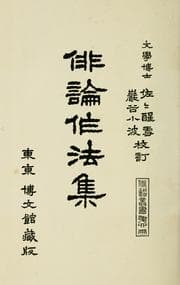 文學博士
佐々醒雪
巖谷小波 校訂
俳論作法集
東京 博文館藏版